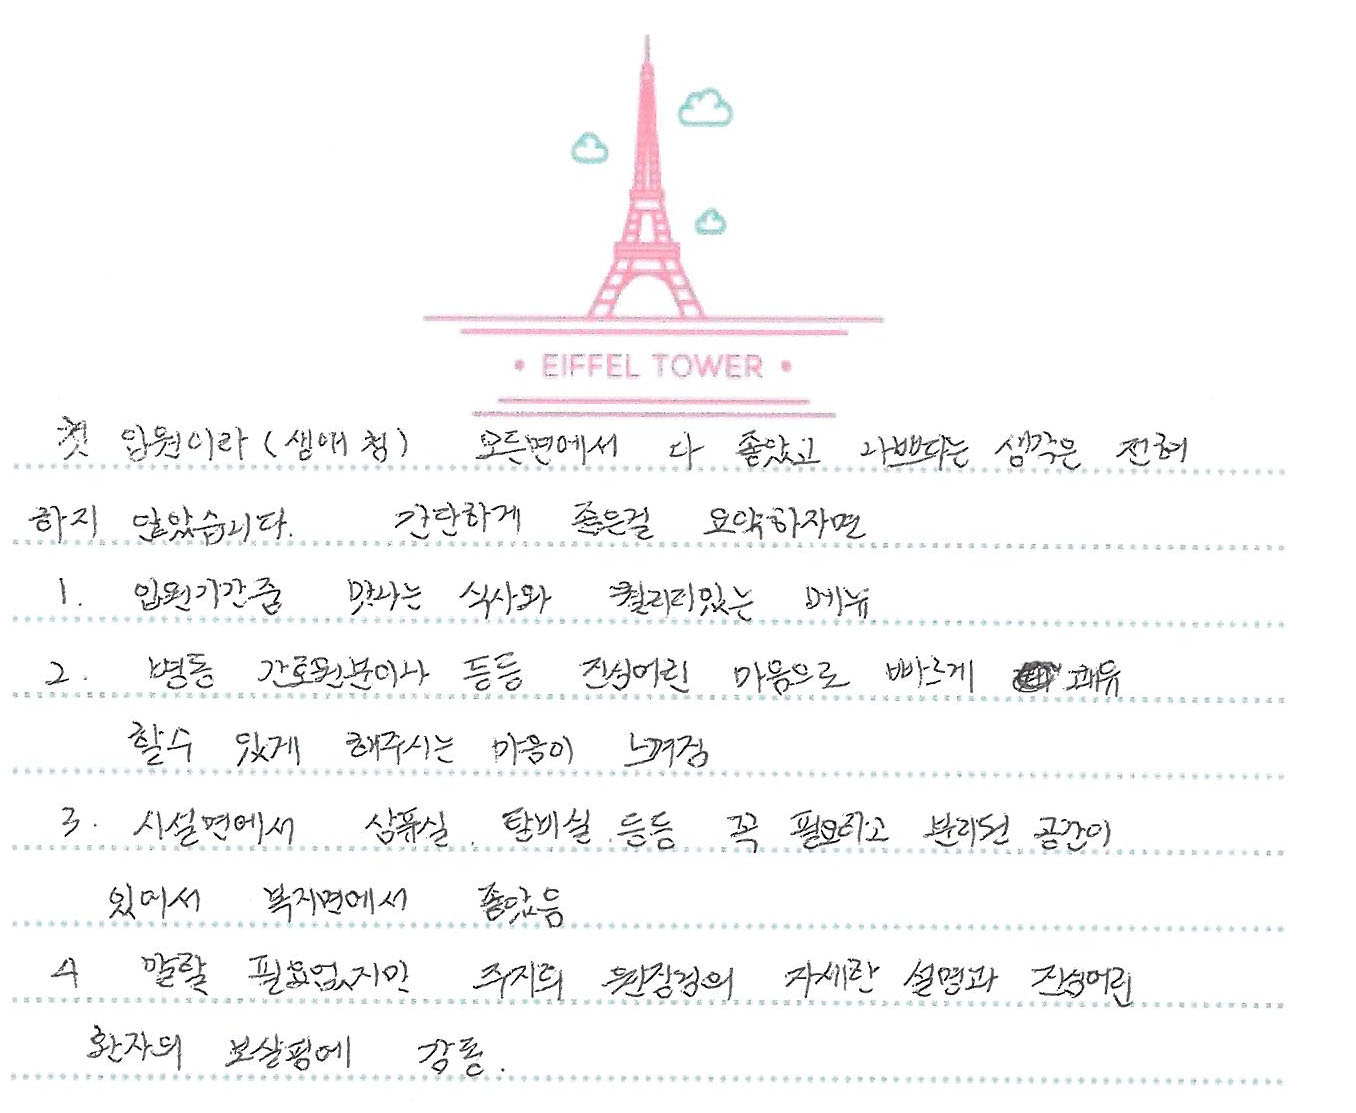 • EIFFEL TOWER •
첫 입원이라 (생애 첨) 모든면에서 다 좋았고 나쁘다는 생각은 전혀
하지 않았습니다. 간단하게 좋은걸 요약하자면
1. 입원기간중 맛나는 식사와 퀄리티있는 메뉴
2. 병동 간호원분이나 등등 진심어린 마음으로 빠르게 쾌유
할수 있게 해주시는 마음이 느껴짐
3. 시설면에서 샴푸실. 탕비실 등등 꼭 필요하고 분리된 공간이
있어서 복지면에서 좋았음
4 말할 필요없지만 주치의 원장님의 자세한 설명과 진심어린
환자의 보살핌에 감동.